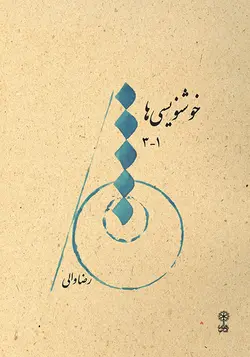 خوشنویسی‌ها
۱-۳
رضا والی